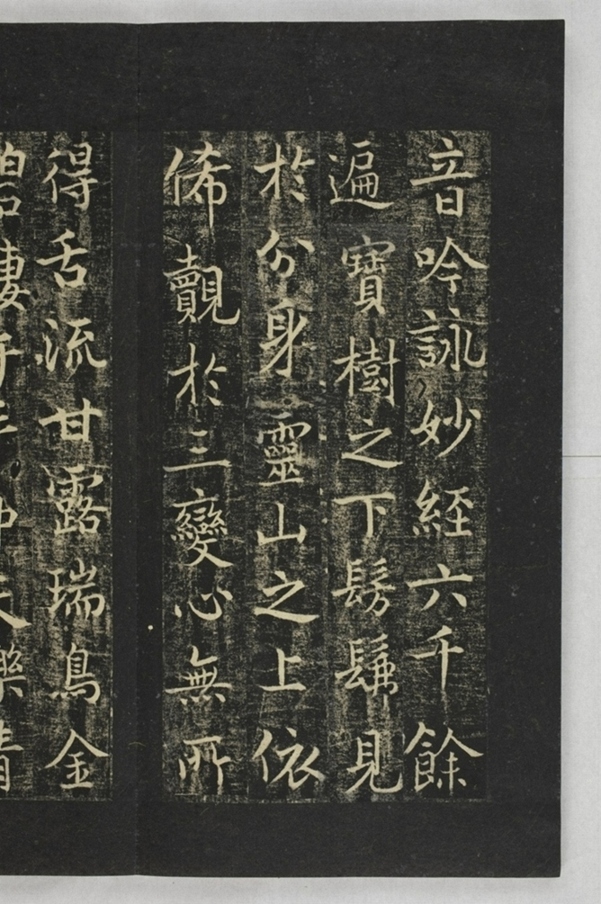 音吟詠妙經六千餘
遍寶樹之下髣髴見
於分身靈山之上依
俙覿於三變心無所
得舌流甘露瑞鳥金